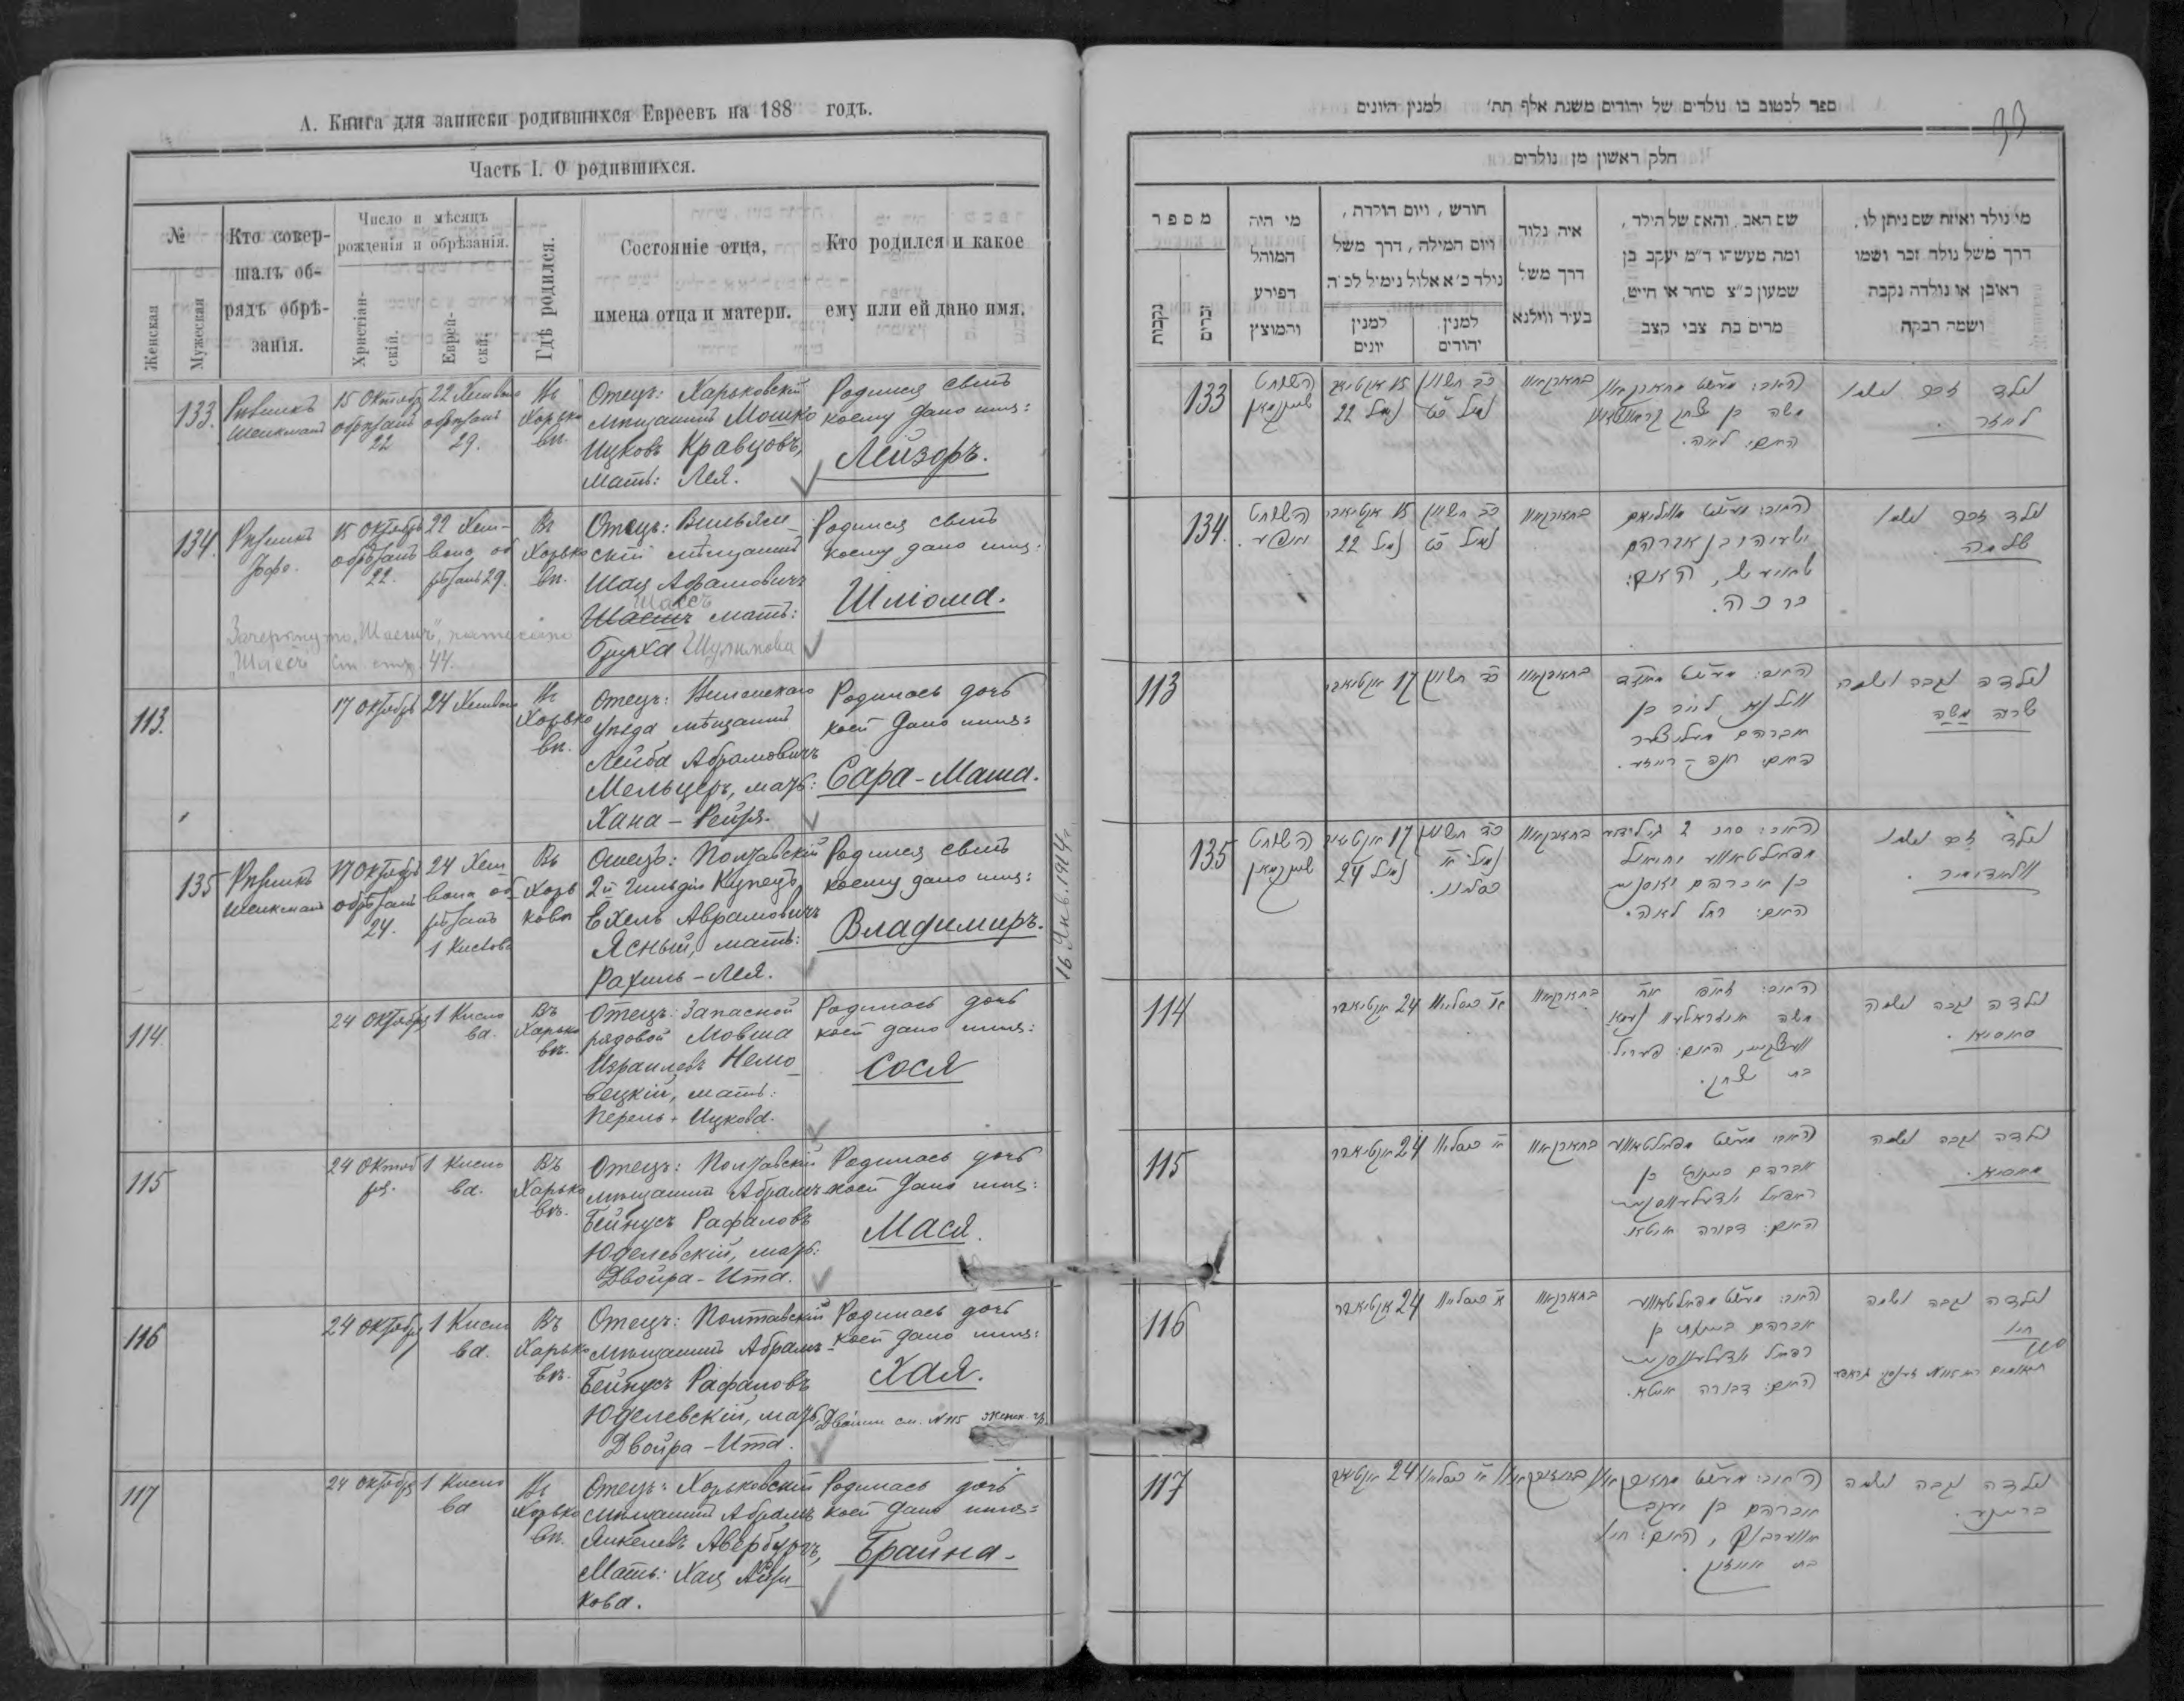 А. Книга для записки родившихся Евреевъ на 188 годъ.
Часть I. О родившихся.
№
Женская
Мужеская
Кто совер-
шалъ об-
рядъ обрѣ-
занія.
Число и мѣсяцъ
рожденія и обрѣзанія.
Христіан-
скій.
Еврей-
скій.
Гдѣ родился.
Состояніе отца,
имена отца и матери.
Кто родился и какое
ему или ей дано имя.
133.
Рѣзникъ
Шенкманъ
15 Октябр
обрѣзанъ
22
22 Хешвана
обрѣзанъ
29.
Въ
Харько
вѣ.
Отецъ: Харьковскій
мѣщанинъ Мошко
Ицковъ Кравцовъ,
мать: Лея.
Родился сынъ
коему дано имя:
Лейзоръ.
134.
Рѣзникъ
Іоффе.
15 Октябр
обрѣзанъ
22.
22 Хеш-
вана об
рѣзанъ 29.
Въ
Харько
вѣ.
Отецъ:
скій мѣщанинъ
Шая Абрамовичъ
Шаесъ
мать:
Бруха Шулимова
Родился сынъ
коему дано имя:
Шліома.
Зачеркнуто написано
"Шаесъ" См. стр. 44.
113.
17 Октября
24 Хешвана
Въ
Харько
вѣ.
Отецъ: Виленскаго
уѣзда мѣщанинъ
Лейба Абрамовичъ
Мельцеръ, мать:
Хана-Рейзя.
Родилась дочь
коей дано имя:
Сара-Маша.
135
Рѣзникъ
Шенкманъ
17 Октябр
обрѣзанъ
24.
24 Хеш
вана об
рѣзанъ
1 Кислова
Въ
Харь
ковѣ
Отецъ: Полтавскій
2й Гильдіи Купецъ
Ехель Аврамовичъ
Ясный, мать:
Рахиль-Лея.
Родился сынъ
коему дано имя:
Владимиръ.
16 Янв. 1914 г.
114
24 Октября
1 Кисло
ва.
Въ
Харько
вѣ.
Отецъ: Запасной
рядовой Мовша
Израилевъ Немо
вецкій, мать:
Перель-Ицкова.
Родилась дочь
коей дано имя:
Сося
115
24 Октяб
ря.
1 Кисло
ва.
Въ
Харько
вѣ.
Отецъ: Полтавскій
мѣщанинъ Абрамъ-
Бейнусъ Рафаловъ
Юделевскій, мать:
Двойра-Ита.
Родилась дочь
коей дано имя:
Мася.
116
24 Октября
1 Кисло
ва.
Въ
Харько
вѣ.
Отецъ: Полтавскій
мѣщанинъ Абрамъ-
Бейнусъ Рафаловъ
Юделевскій, мать,
Двойра-Ита.
Родилась дочь
коей дано имя:
Хая.
Двойни см. № 115 женск.
117
24 Октября
1 Кисло
ва
Въ
Харько
вѣ.
Отецъ: Харьковскій
мѣщанинъ Абрамъ
Янкелевъ Авербухъ,
Мать: Хая Айзи-
кова.
Родилась дочь
коей дано имя:
Брайна-
ספר לכטוב בו נולדים של יהודים משנת אלף תת׳ למנין היונים
33
חלק ראשון מן נולדים
מספר
נקבות
זכרים
מי היה
המוהל
הפורע
והמוצץ
חורש, ויום הולדת,
ויום המילה, דרך משל
נולד כ׳א אלול נימיל לכ״ה
למנין
יונים
למנין
יהודים
איה נלוד
דרך משל
בעיר ווילנא
שם האב, והאם של הילד,
ומה מעשהו ד״מ יעקב בן
שמעון כ״צ סוחר או חייט,
מרים בת צבי קצב
מי נולד ואיזה שם ניתן לו,
דרך משל נולד זכר ושמו
ראובן או נולדה נקבה
ושמה רבקה
133
השוחט
שיינקמאן
15 אקטיאבר
נמול 22
כב חשון
נמול כט
בחארקאוו
משה בן יצחק
האם: לאה.
נולד זכר ושמו
לייזר.
134.
השוחט
יאפע.
15 אקטיאבר
נמול 22
כב חשון
נמול כט
בחארקאוו
ישעיהו בן אברהם
האם:
ברכה.
נולד זכר ושמו
שלמה.
113
17 אקטיאבר
כד חשון
בחארקאוו
ווילנא לייב בן
אברהם מעלצער
האם: חנה-רייזע.
נולדה נקבה ושמה
שרה משה
135
השוחט
שיינקמאן
17 אקטיאבר
נמול 24
כד חשון
נמול א׳
כסלו.
בחארקאוו
האב: סוחר 2 גילדיע
בן אברהם יאסני
האם: רחל לאה.
נולד זכר ושמו
וולאדימיר.
114
24 אקטיאבר
א׳ כסליו
בחארקאוו
בת יצחק.
נולדה נקבה ושמה
סאסיא.
115
24 אקטיאבר
א׳ כסליו
בחארקאוו
אברהם ביינוש בן
רפאל יודעלעווסקי
האם: דבורה איטא.
נולדה נקבה ושמה
מאסיא.
116
24 אקטיאבר
א׳ כסליו
בחארקאוו
אברהם ביינוש בן
רפאל יודעלעווסקי
האם: דבורה איטא.
נולדה נקבה ושמה
חיה
117
24 אקטיאבר
א׳ כסליו
בחארקאוו
אברהם בן יעקב
אווערבוך, האם: חיה
בת אייזיק.
נולדה נקבה ושמה
בריינע.